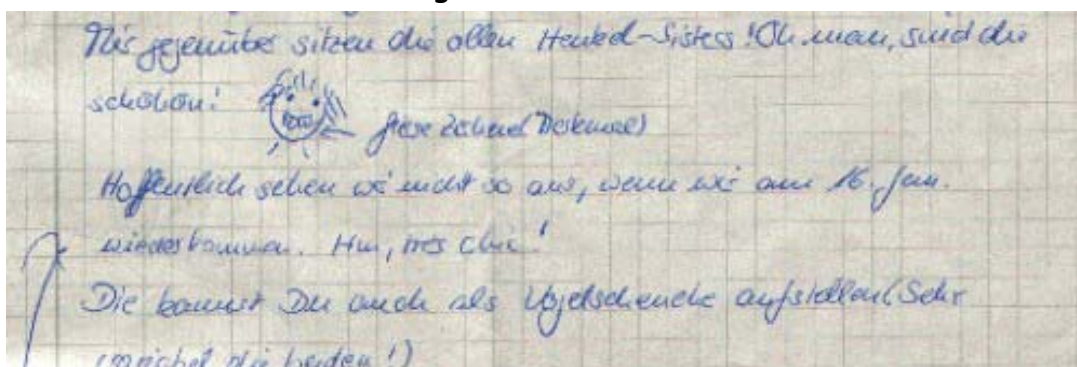 Mir gegenüber sitzen die ollen Henkel-Sisters! Oh man, sind die
schöhön!
fiese Zähne (Merkmal)
Hoffentlich sehen wir nicht so aus, wenn wir am 16. Jan.
wiederkommen. Hm, très chic!
Die kannst Du auch als Vogelscheuche aufstellen (Sehr
die beiden!)